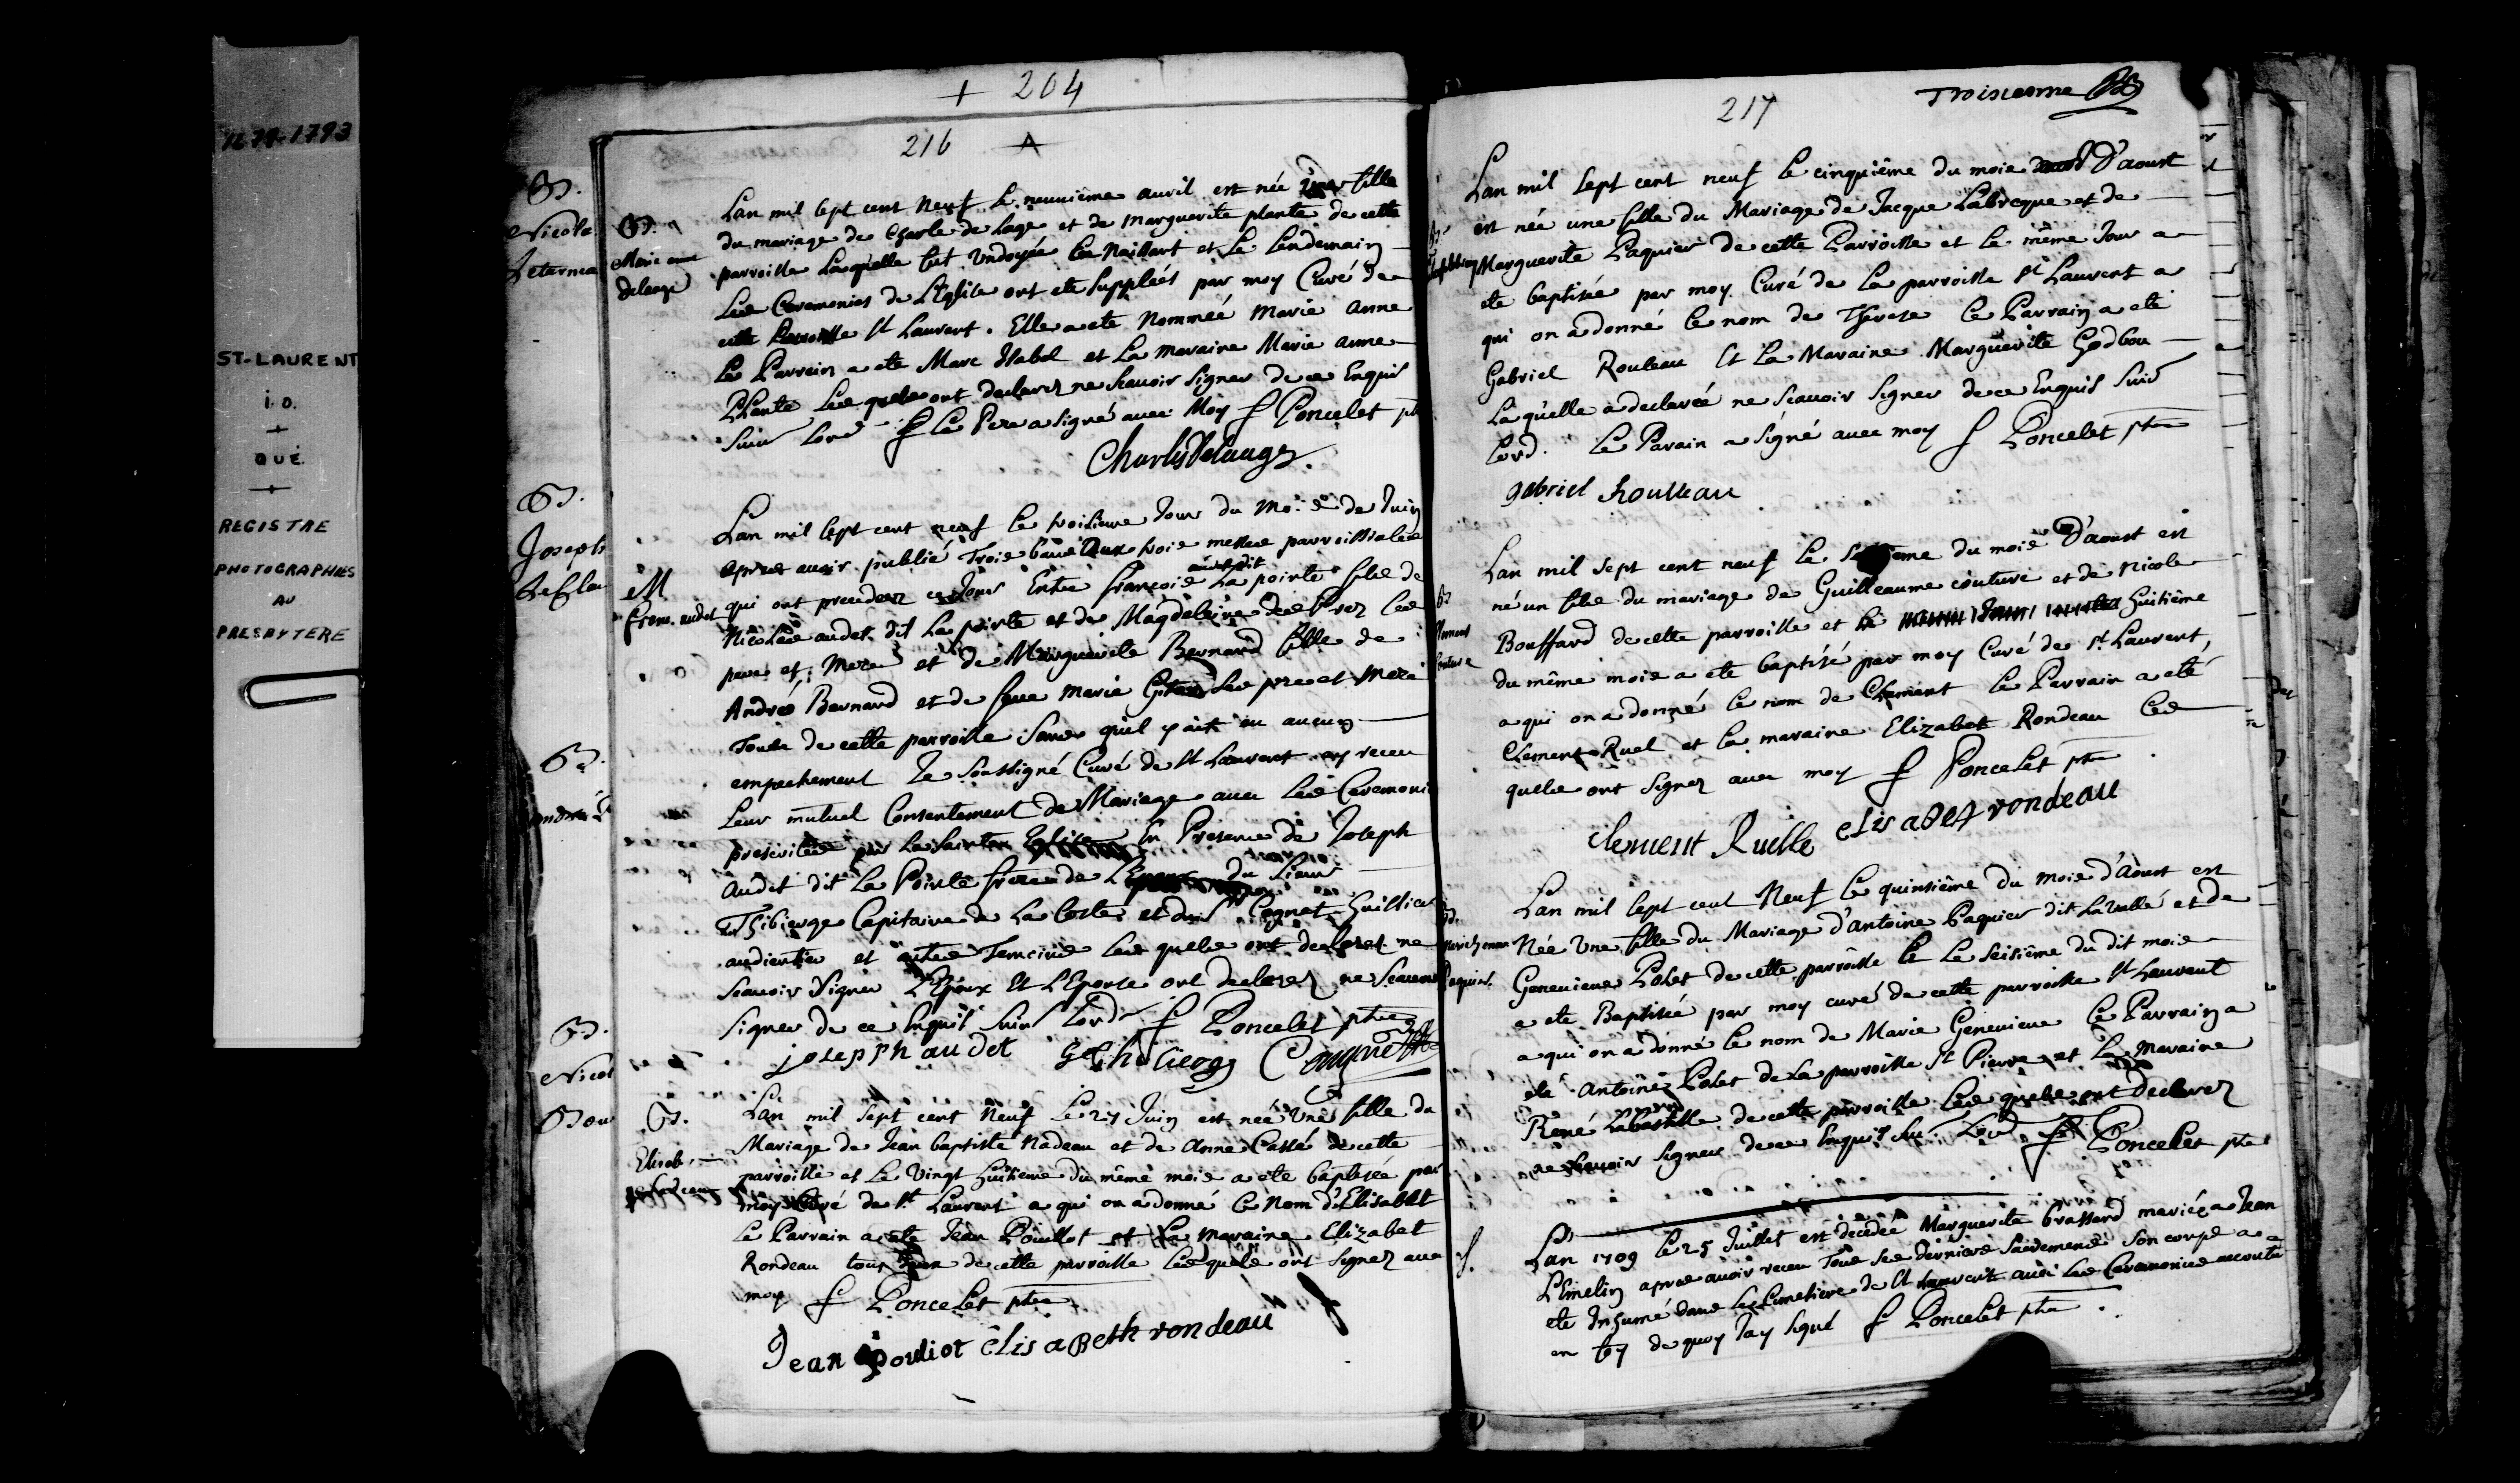 1679-1793
ST-LAURENT
i.o.
QUÉ.
REGISTRE
PHOTOGRAPHIÉS
AU
PRESBYTERE
+ 204
216
B.
Nicola
Joseph
B.
Nicol
B.
Marie anne
delage
Lan mil sept cent neuf le neuvieme avril est née une fille
du mariage de Charle de Lage et de marguerite plante de cette
parroisse Laquelle fut ondoyée en naissant et le Lendemain
Les Ceremonies de L'Eglise ont ete suppleés par moy Curé de
cette Parroisse St Laurent. Elle a ete Nommeé Marie Anne
Le Parrein a ete Marc Isabel et La maraine Marie anne
Plante Les quels ont declarez ne scavoir signer de ce Enquis
suiv Lord f Le Pere a signé avec Moy f Poncelet ptr
Charles Delauge
M
franc. audet
Lan mil sept cent neuf le troisieme Jour du Mois de Juin
apres avoir publié Trois bans aux trois messes parroissiales
qui ont precedez ce Jour Entre françois audet dit La pointe fils de
Nicolas audet dit La pointe et de Magdeleine des Prez Les
pere et Mere et de Marguerite Bernard fille de
André Bernard et de feue Marie Gitton Les pere et Mere
Tous de cette parroisse sans quil y ait eu aucun
empechement Je soussigné Curé de St Laurent ay receu
Leur mutuel Consentement de Mariage avec Les Ceremonies
prescrites par La Sainte Eglise En Presence de Joseph
audet dit La Pointe frere de L'Epoux du Sieur
Thibierge Capitaine de La Coste et du Sr Cognet huissier
audientier et autres Temoins Les quels ont declarez ne
scavoir signer L'Epoux Et L'Epouse ont declarez ne scavoir
signer de ce Enquis suiv Lord f Poncelet ptre
joseph audet G Thibierge Congnet
B.
Elisab.
nadeau
Lan mil sept cent neuf Le 27 Juin est neé Une fille du
Mariage de Jean baptiste nadeau et de Anne Cassé de cette
parroisse et Le Vingt huitieme du même mois a ete baptisée par
moy Curé de St Laurent a qui on a donné le Nom d'Elisabet
Le Parrain a ete Jean Pouillot et La maraine Elizabet
Rondeau tous deux de cette parroisse Les quels ont signez avec
moy f Poncelet ptre
Jean pouliot élisabeth rondeau
217
Troisiesme
Lan mil sept cent neuf le cinquiême du mois D'aoust
est née une fille du Mariage de Jacque Labrecque et de
Marguerite Paquier de cette Parroisse et le même Jour a
ete baptisée par moy Curé de La parroisse St Laurent a
qui on a donné le nom de Therese Le Parrain a eté
Gabriel Rouleau et La Maraine Marguerite Godbou
La quelle a declareé ne scavoir signer de ce Enquis suiv
Lord. Le Parain a signé avec moy f Poncelet ptre
gabriel houlleau
B
Clement
Couture
Lan mil sept cent neuf le du mois D'aoust est
né un fils du mariage de Guilleaume couture et de Nicole
Bouffard de cette parroisse et le huitième
du même mois a ete baptisé par moy Curé de St Laurent,
a qui on a donné le nom de Clement Le Parrain a eté
Clement Ruel et la maraine Elizabet Rondeau Les
quels ont signez avec moy f Poncelet ptre
Clement Ruelle elisabet rondeau
Paquier
Lan mil sept cent Neuf le quinsième du mois d'aoust est
Née Une fille du Mariage d'antoine Paquier dit Lavallé et de
Genevieve Polet de cette parroisse le seisième du dit mois
a ete Baptisée par moy curé de cette parroisse St Laurent
a qui on a donné le nom de Marie Genevieve Le Parrain a
eté Antoine Polet de La parroisse St Pierre et La Maraine
René Labastille de cette parroisse Les quels ont declarez
ne scavoir signer de ce Enquis Su Lord f Poncelet ptre
S.
Lan 1709 le 25 Juillet est decedée Marguerite brassard mariée a Jean
Emelin apres avoir receu Tous ses derniers sacremens son corps a
ete Inhumé dans Le Cimetiere de St Laurent avec Les Ceremonies accoutu
en foy de quoy Jay signé f Poncelet ptre